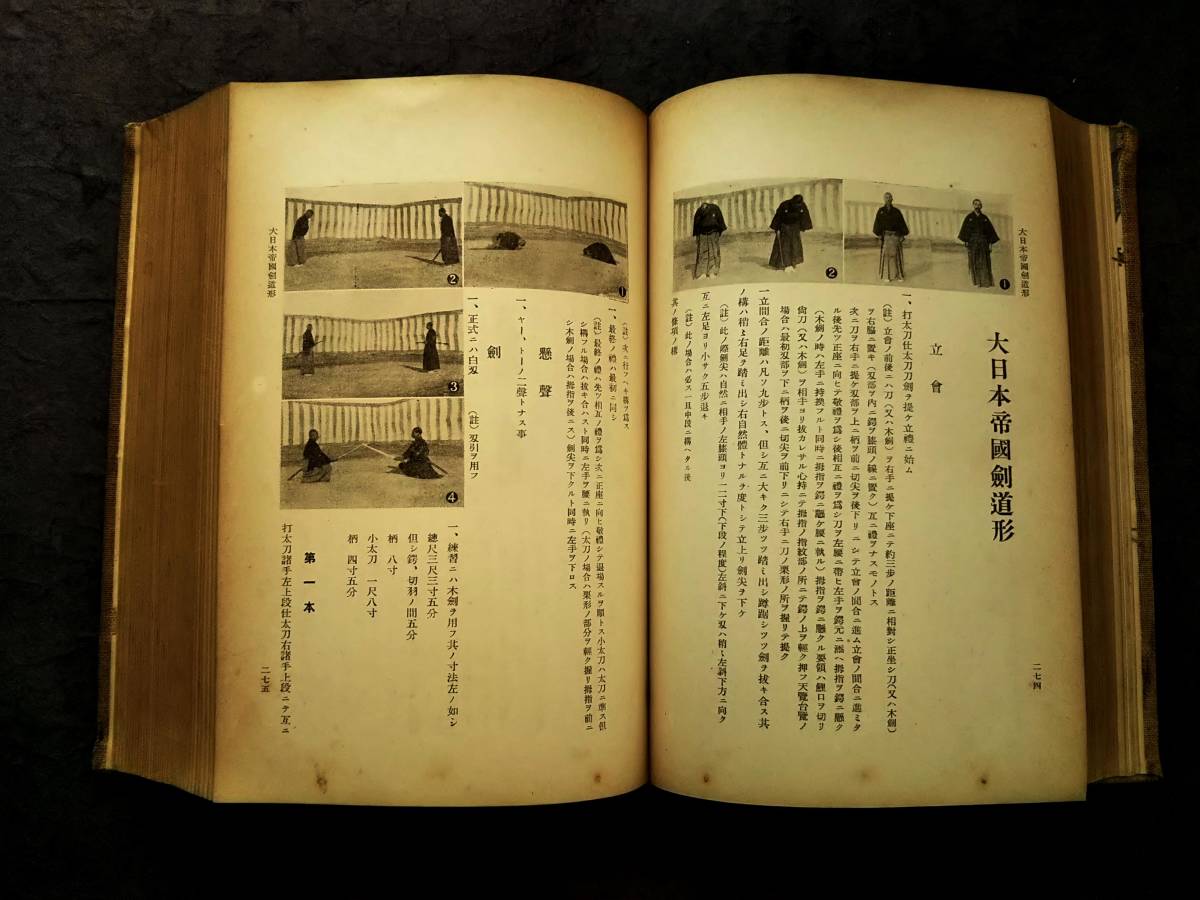 大日本帝國劍道形
二七四
❶
❷
大日本帝國劍道形
立會
一、打太刀仕太刀刀劍ヲ提ケ立禮ニ始ム
(註)立會ノ前後ニハ刀(又ハ木劍)ヲ右手ニ提ケ下座ニテ約三步ノ距離ニ相對シ正坐シ刀(又ハ木劍)
ヲ右脇ニ置キ(刄部ヲ內ニ鍔ヲ膝頭ノ線ニ置ク)互ニ禮ヲナスモノトス
次ニ刀ヲ右手ニ提ケ刄部ヲ上ニ柄ヲ前ニ切尖ヲ後下リニシテ立會ノ間合ニ進ム立會ノ間合ニ進ミタ
ル後先ツ正座ニ向ヒテ敬禮ヲ爲シ後相互ニ禮ヲ爲シ刀ヲ左腰ニ帶ヒ左手ヲ鍔元ニ添ヘ拇指ヲ鍔ニ懸ク
(木劍ノ時ハ左手ニ持換フルト同時ニ拇指ヲ鍔ニ懸ケ腰ニ執ル)拇指ヲ鍔ニ懸クル要領ハ鯉口ヲ切リ
尙刀(又ハ木劍)ヲ相手ヨリ拔カレサル心持ニテ拇指ノ指紋部ノ所ニテ鍔ノ上ヲ輕ク押フ天覽台覽ノ
場合ハ最初刄部ヲ下ニ柄ヲ後ニ切尖ヲ前下リニシテ右手ニ刀ノ栗形ノ所ヲ握リテ提ク
一立間合ノ距離ハ凡ソ九步トス、但シ互ニ大キク三步ツツ踏ミ出シ蹲踞シツツ劍ヲ拔キ合ス其
ノ構ハ稍〻右足ヲ踏ミ出シ右自然體トナルヲ度トシテ立上リ劍尖ヲ下ケ
(註)此ノ際劍尖ハ自然ニ相手ノ左膝頭ヨリ一二寸下(下段ノ程度)左斜ニ下ケ刄ハ稍〻左斜下方ニ向ク
互ニ左足ヨリ小サク五步退キ
(註)此ノ場合ハ必ス一旦中段ニ構ヘタル後
其ノ條項ノ構
(註)次ニ行フヘキ構ヲ爲ス
一、最終ノ禮ハ最初ニ同シ
(註)最終ノ禮ハ先ツ相互ノ禮ヲ爲シ次ニ正座ニ向ヒ敬禮シテ退場スルヲ順トス小太刀ハ太刀ニ準ス但
シ構フル場合ハ拔キ合ハスト同時ニ左手ヲ腰ニ執リ(太刀ノ場合ハ栗形ノ部分ヲ輕ク握リ拇指ヲ前ニ
シ木劍ノ場合ハ拇指ヲ後ニス)劍尖ヲ下クルト同時ニ左手ヲ下ロス
懸聲
一、ヤー、トーノ二聲トナス事
劍
一、正式ニハ白刄
(註)刄引ヲ用フ
❶
❷
❸
❹
一、練習ニハ木劍ヲ用フ其ノ寸法左ノ如シ
總尺三尺三寸五分
但シ鍔、切羽ノ間五分
柄 八寸
小太刀 一尺八寸
柄 四寸五分
第一本
打太刀諸手左上段仕太刀右諸手上段ニテ互ニ
大日本帝國劍道形
二七五